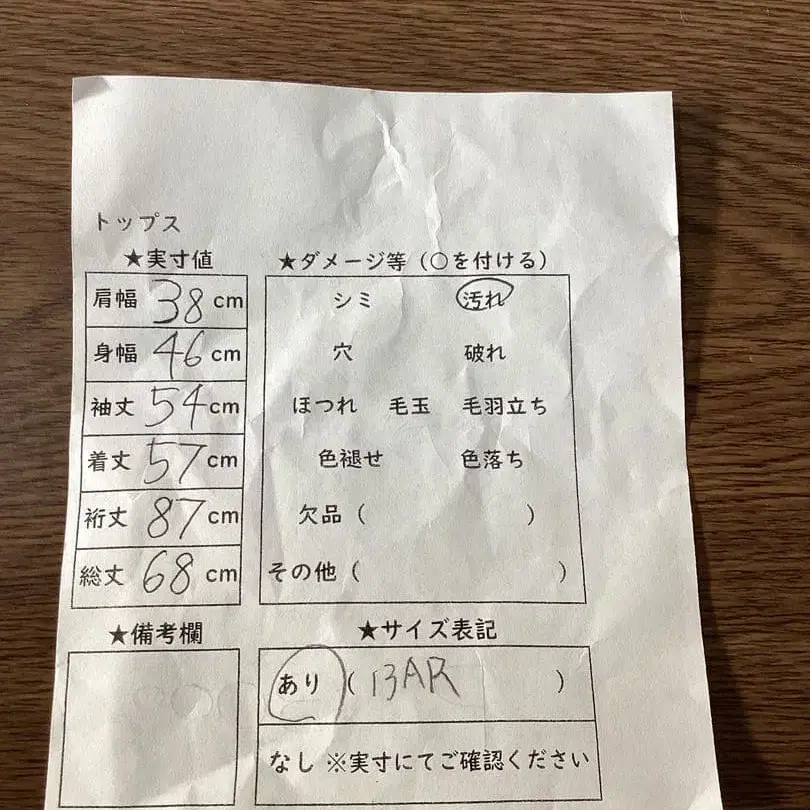 トップス
★実寸値
肩幅 38 cm
身幅 46 cm
袖丈 54 cm
着丈 57 cm
裄丈 87 cm
総丈 68 cm
★ダメージ等（○を付ける）
シミ 汚れ
穴 破れ
ほつれ 毛玉 毛羽立ち
色褪せ 色落ち
欠品（ ）
その他（ ）
★備考欄
★サイズ表記
あり（ 13AR ）
なし ※実寸にてご確認ください